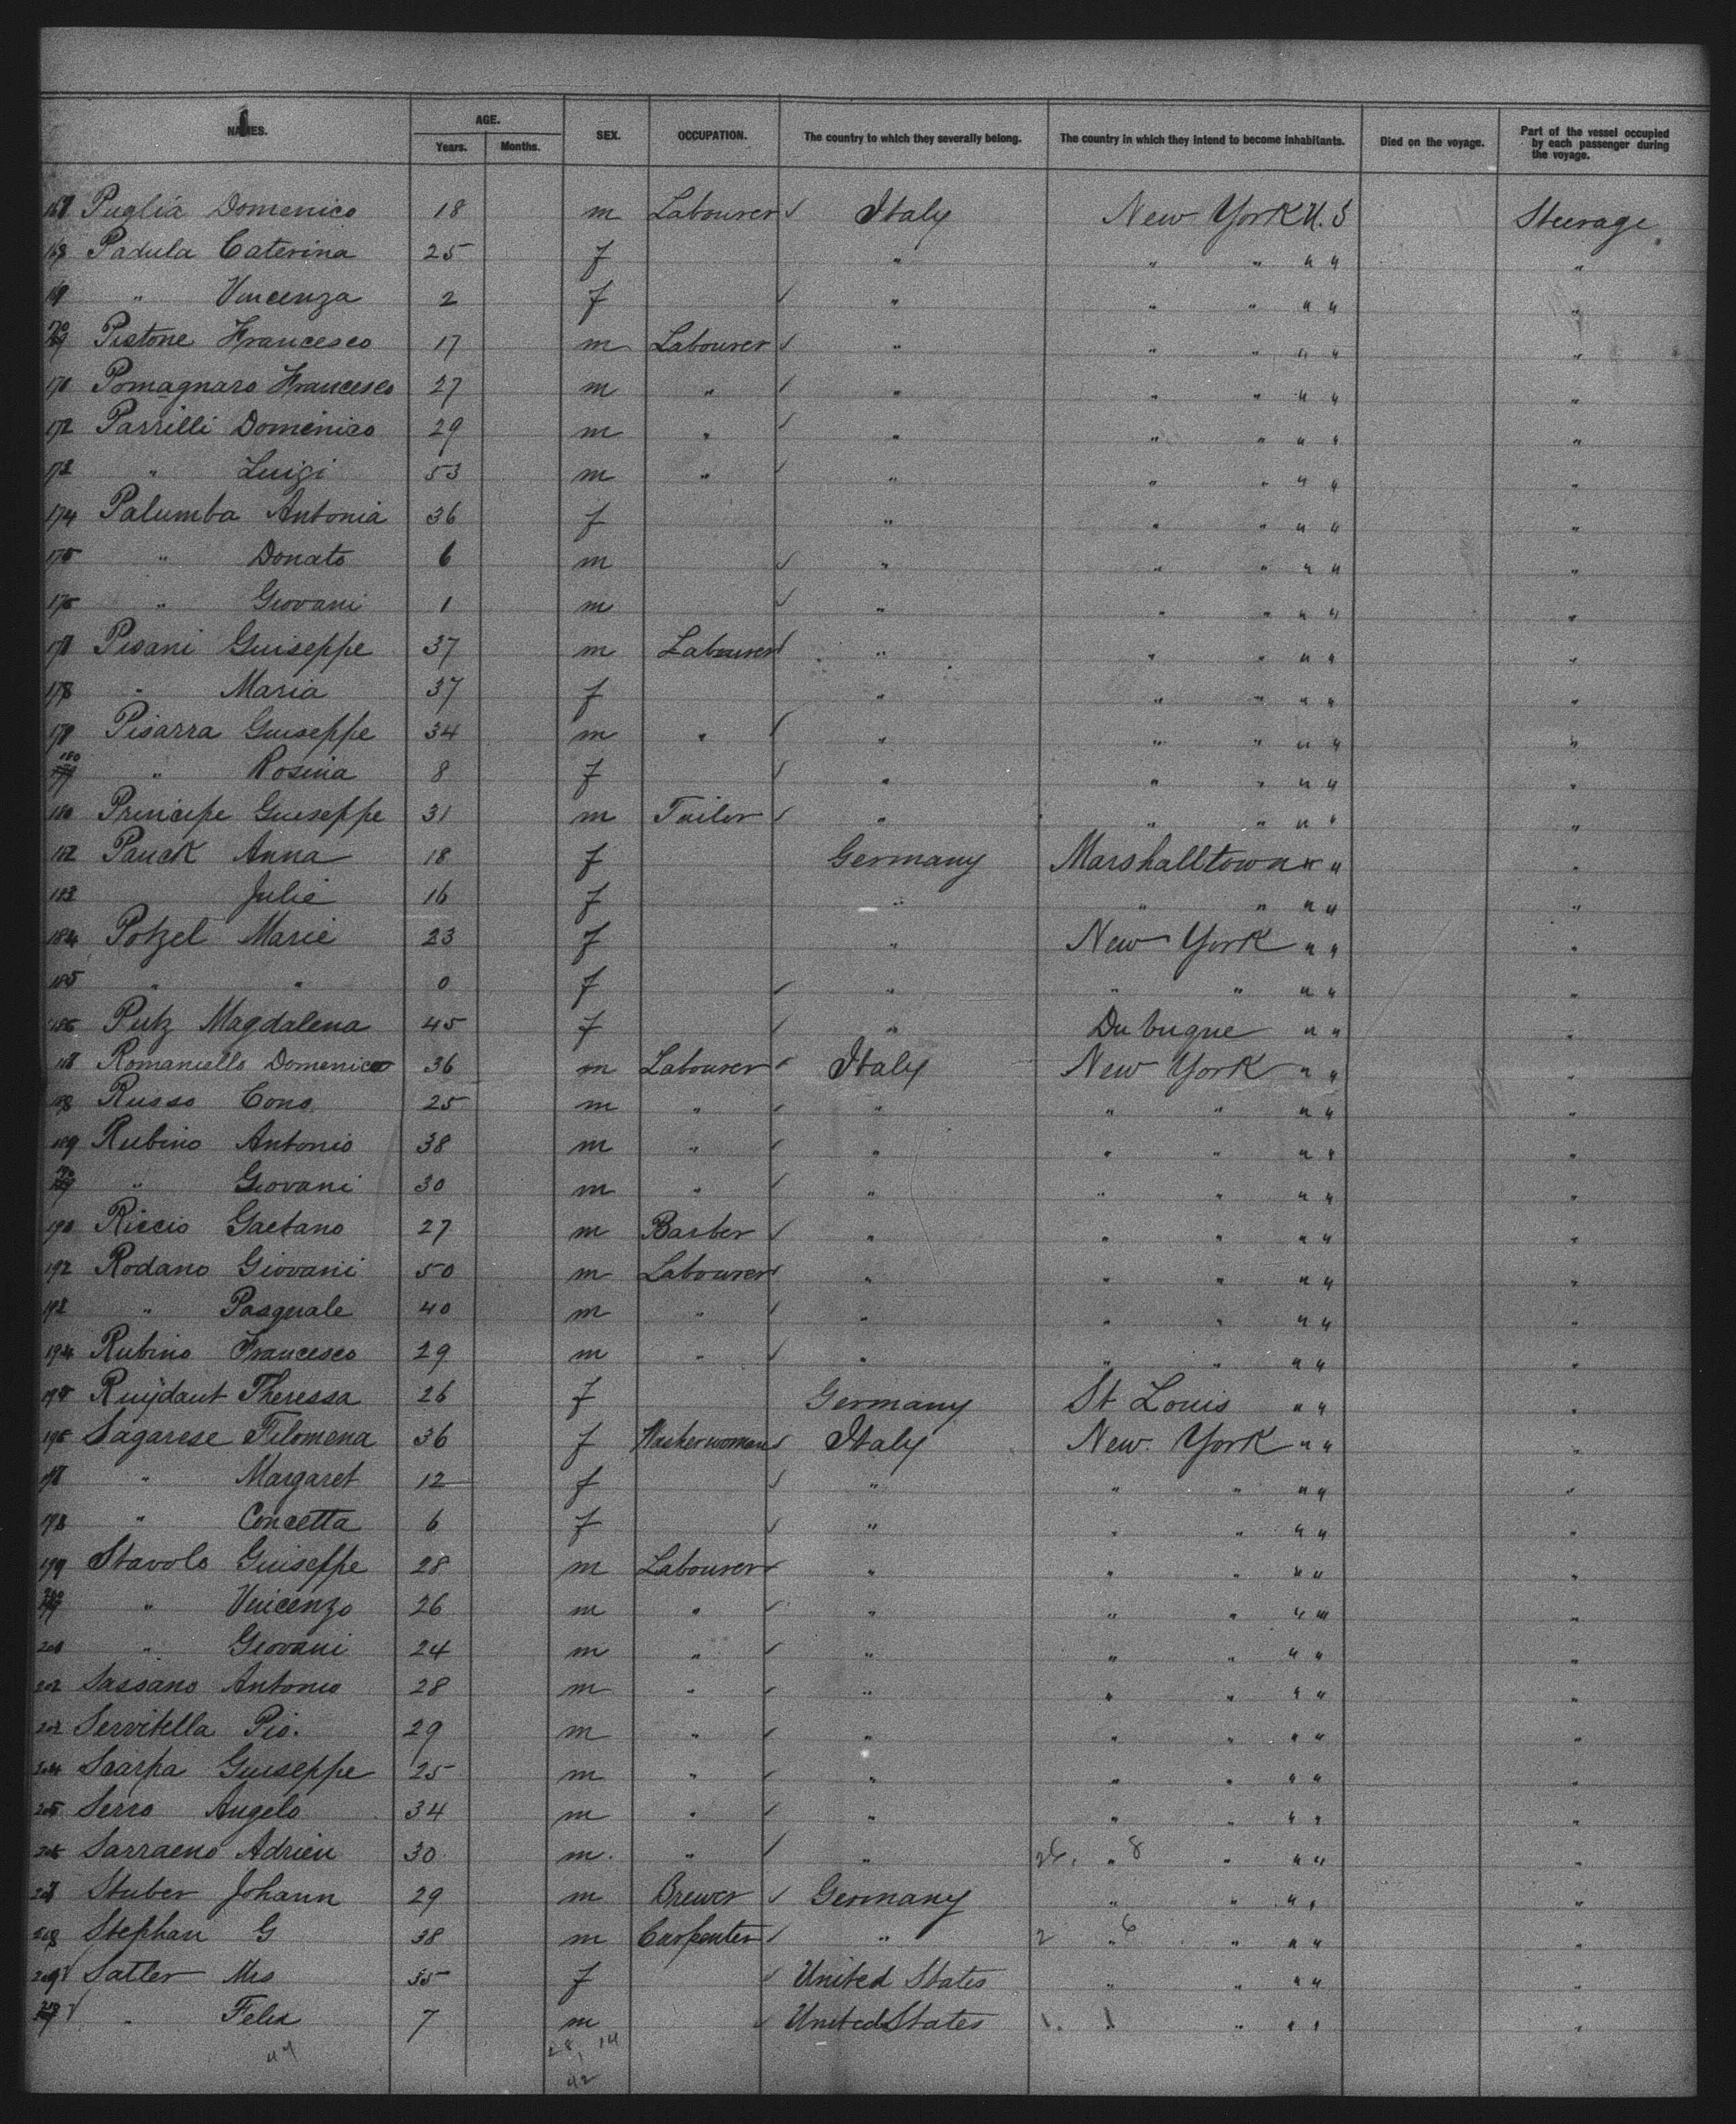 NAMES. AGE. SEX. OCCUPATION. The country to which they severally belong. The country in which they intend to become inhabitants. Died on the voyage. Part of the vessel occupied by each passenger during the voyage.
Years. Months.
Puglia Domenico 18 m Labourer Italy New York U.S Steerage
Padula Caterina 25 f " " " " " "
169 " Vincenza 2 f " " " " " "
170 Pistone Francesco 17 m Labourer " " " " " "
171 Pomagnaro Francesco 27 m " " " " " " "
172 Parrilli Domenico 29 m " " " " " " "
173 " Luigi 53 m " " " " " " "
174 Palumba Antonia 36 f " " " " " "
175 " Donato 6 m " " " " " "
" Giovani 1 m " " " " " "
Pisani Guiseppe 37 m Labourer " " " " " "
178 " Maria 37 f " " " " " "
179 Pisarra Guiseppe 34 m " " " " " " "
180 " Rosina 8 f " " " " " "
Principe Guiseppe 31 m Tailor " " " " " "
182 Pauck Anna 18 f Germany Marshalltown " " "
183 Julie 16 f " " " " " "
184 Potzel Marie 23 f " New York " " "
185 " " 0 f " " " " " "
186 Putz Magdalena 45 f " Dubuque " " "
Romaniello Domenico 36 m Labourer Italy New York " " "
188 Russo Cono 25 m " " " " " " "
189 Rubino Antonio 38 m " " " " " " "
190 " Giovani 30 m " " " " " " "
Riccio Gaetano 27 m Barber " " " " " "
192 Rodano Giovani 50 m Labourer " " " " " "
193 " Pasquale 40 m " " " " " " "
194 Rubino Francesco 29 m " " " " " " "
195 Ruijdaut Theressa 26 f Germany St Louis " " "
Sagarese Filomena 36 f Washerwoman Italy New York " " "
" Margaret 12 f " " " " " "
198 " Concetta 6 f " " " " " "
199 Stavolo Guiseppe 28 m Labourer " " " " " "
200 " Vincenzo 26 m " " " " " " "
201 " Giovani 24 m " " " " " " "
202 Sassano Antonio 28 m " " " " " " "
203 Servitella Pio. 29 m " " " " " " "
204 Scarpa Guiseppe 25 m " " " " " " "
205 Serro Angelo 34 m " " " " " " "
Sarraeno Adrien 30 m. " " " " " " "
207 Stuber Johann 29 m Brewer Germany " " " " "
208 Stephan G 38 m Carpenter " " " " " "
209 Satler Mrs 35 f United States " " " " "
210 " Felix 7 m United States " " " " "
28, 14
42